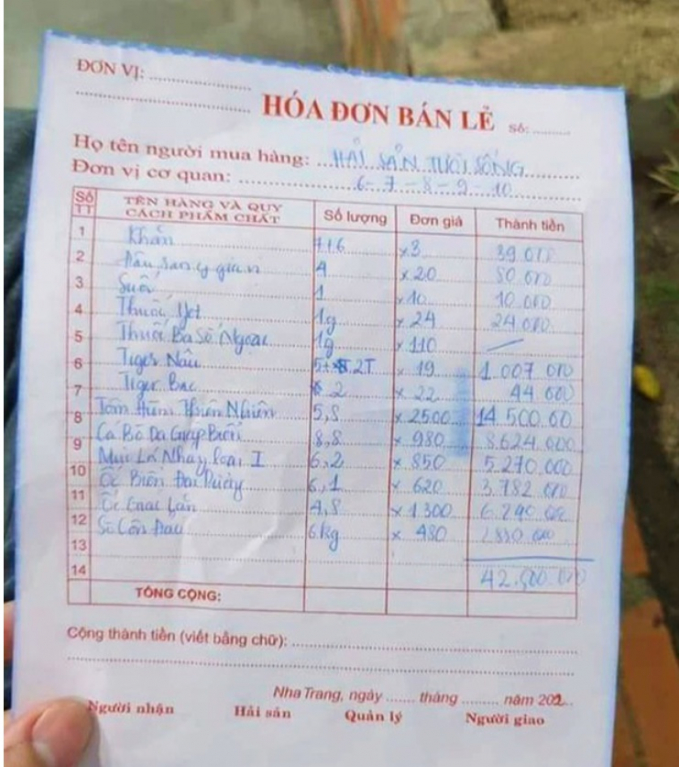 ĐƠN VỊ: ....................
HÓA ĐƠN BÁN LẺ Số: .........
Họ tên người mua hàng: HẢI SẢN TƯƠI SỐNG
Đơn vị cơ quan: 6-7-8-9-10
Số TT TÊN HÀNG VÀ QUY CÁCH PHẨM CHẤT Số lượng Đơn giá Thành tiền
1 Khăn 7+6 x3 39 000
2 4 x20 80 000
3 Suối 1 x10 10 000
4 Thuốc Jet 1g x24 24.000
5 Thuốc Ba Số Ngoại 1g x110
6 Tiger Nâu 2T x19 1 007 000
7 Tiger Bạc 2 x22 44 000
8 Tôm Hùm Thiên Nhiên 5,8 x2500 14 500.00
9 Cá Bò Da Giáp Biển 8,8 x980 8.624.000
10 Mực Lá Nháy Loại I 6,2 x850 5.270.000
11 Ốc Biển 6,1 x620 3.782 000
12 Ốc 4,8 x1300 6.240 00
13 Sò Côn Đảo 6kg x480 2880 000
14 42.500.000
TỔNG CỘNG:
Cộng thành tiền (viết bằng chữ): ....................
Nha Trang, ngày ....... tháng ......... năm 202...
Người nhận Hải sản Quản lý Người giao